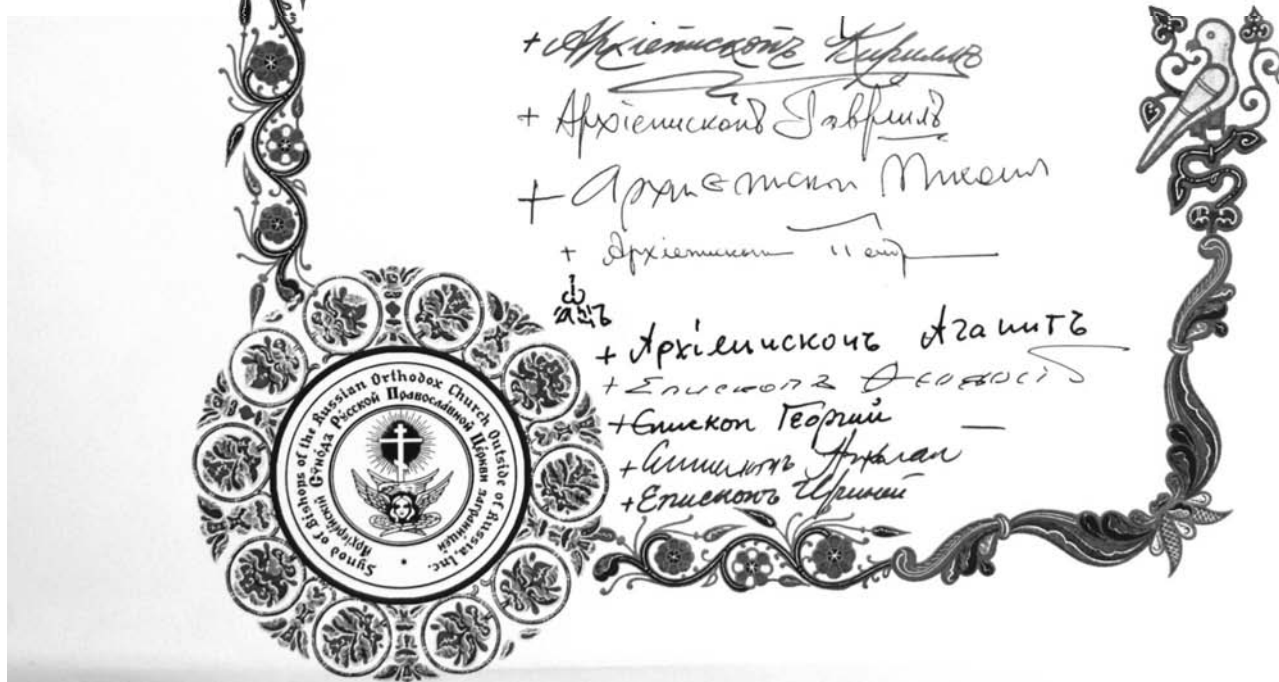 + Архіепископъ Кириллъ
+ Архіепископъ Гавріилъ
+ Архиепископ Михаил
+ Архіепископ Петр
+ Архіепископъ Агапитъ
+ Епископъ Ѳеодосій
+ Епископ Георгий
+ Епископъ Николай
+ Епископъ Ириней
Synod of Bishops of the Russian Orthodox Church Outside of Russia, Inc.
Архіерейскій Сѵнодъ Русской Православной Церкви заграницей